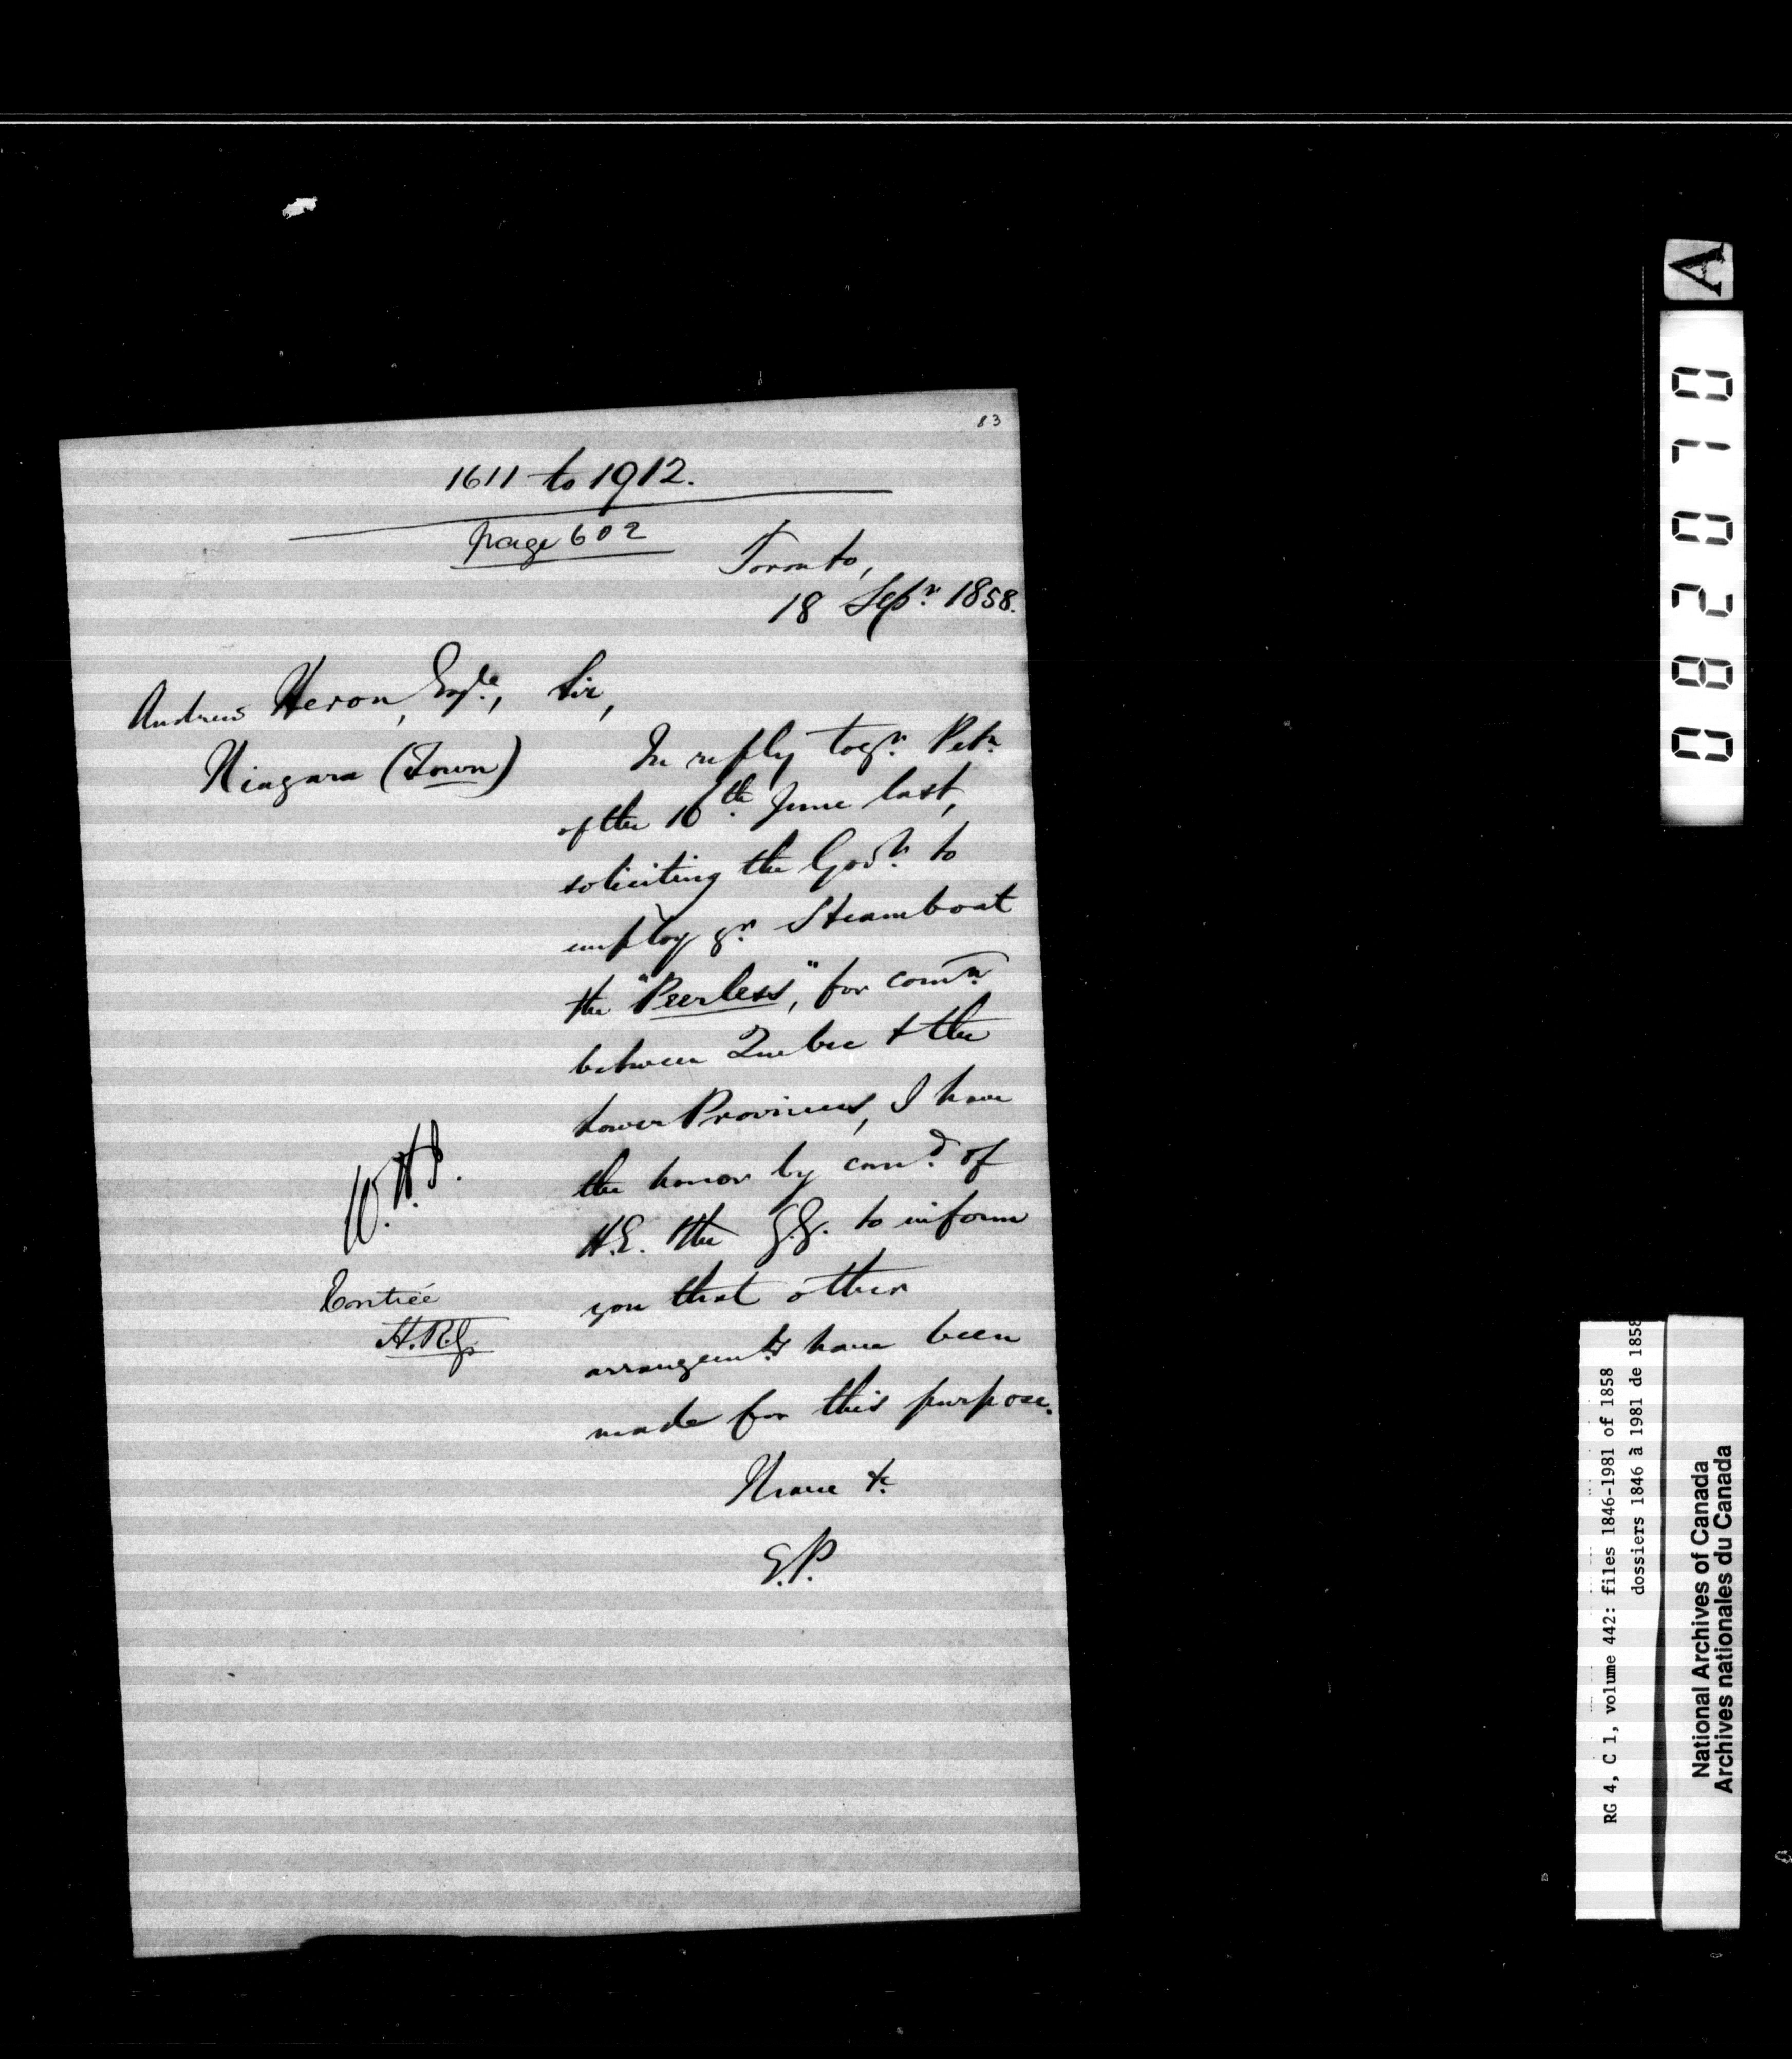 83
1611 to 1912.
page 602
Toronto,
18 Sepr. 1858.
Andrew Heron, Esqre., Sir,
Niagara (Town)
In reply to yr. Petn.
of the 16th. June last,
soliciting the Govt. to
employ yr. Steamboat
the "Peerless", for comn.
between Quebec & the
Lower Provinces, I have
the honor by comd. of
H.E. the G.G. to inform
you that other
arrangemts have been
made for this purpose.
I have &c.
E.P.
Entrée
A
082070
RG 4, C 1, volume 442: files 1846-1981 of 1858
dossiers 1846 à 1981 de 1858
National Archives of Canada
Archives nationales du Canada